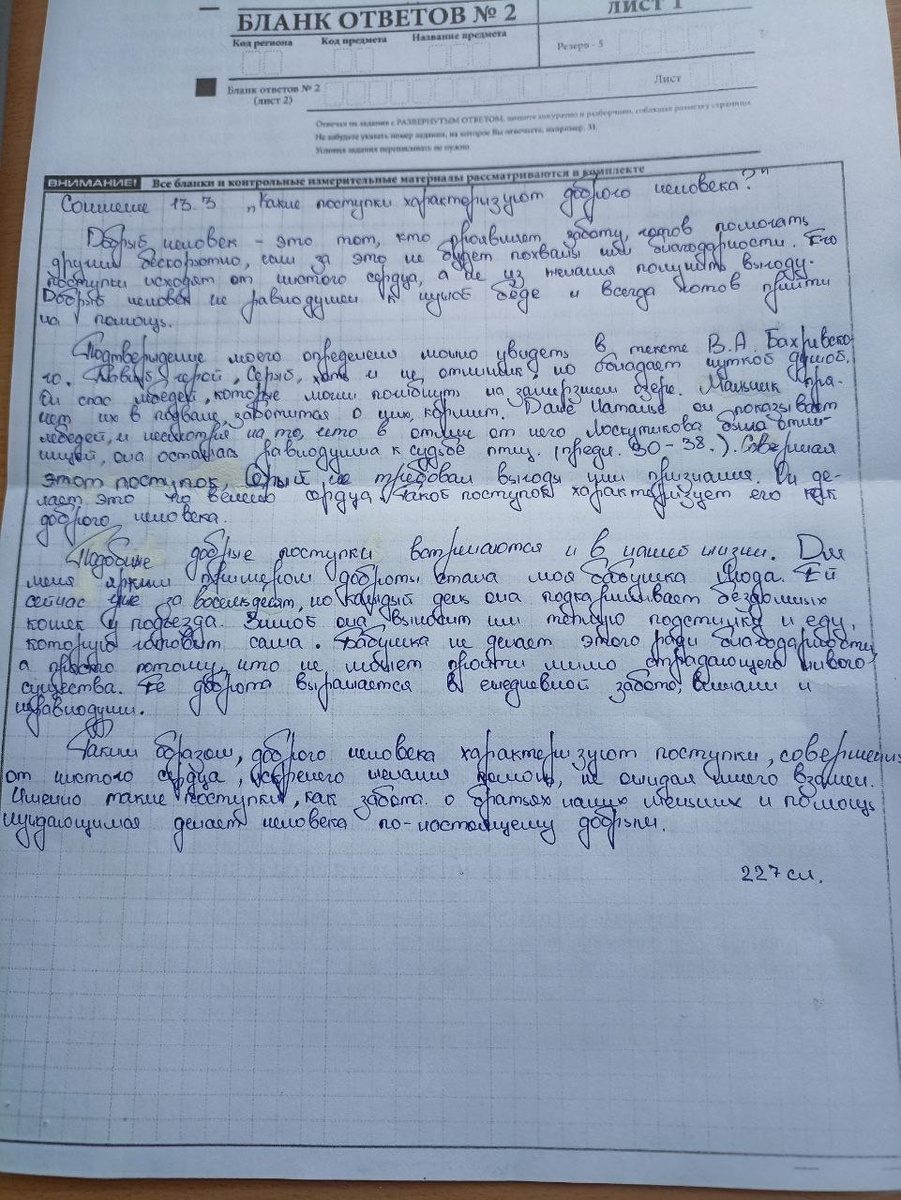 БЛАНК ОТВЕТОВ № 2
ЛИСТ 1
Код региона Код предмета Название предмета
Резерв - 5
Бланк ответов № 2
(лист 2)
Лист
Ответы на задания с РАЗВЕРНУТЫМ ОТВЕТОМ, пишите аккуратно и разборчиво, соблюдая разметку страницы.
Не забудьте указать номер задания, на которое Вы отвечаете, например, 31.
Условия задания переписывать не нужно.
ВНИМАНИЕ! Все бланки и контрольные измерительные материалы рассматриваются в комплекте
13.3 „Какие поступки характеризуют доброго человека?"
Добрый человек - это тот, кто проявляет заботу, готов помогать
другим бескорыстно, если за это не будет похвалы или благодарности. Его
поступки исходят от чистого сердца, а не из желания получить выгоду.
Добрый человек не равнодушен к чужой беде и всегда готов прийти
на помощь.
Подтверждение моего определения можно увидеть в тексте В.А. Бахревско-
го. Главный герой, Серый, хоть и не отличник, но обладает чуткой душой.
Он спас лебедей, которые могли погибнуть на замерзшем озере. Мальчик пря-
чет их в подвале, заботится о них, кормит. Даже Наталье он показывает
лебедей, и несмотря на то, что в отличие от него Лоскутикова была отлич-
ницей, она осталась равнодушна к судьбе птиц. (предл. 30-38.). Совершая
этот поступок, Серый не требовал выгоды или признания. Он де-
лает это по велению сердца. Такой поступок характеризует его как
доброго человека.
Подобные добрые поступки встречаются и в нашей жизни. Для
меня ярким примером доброты стала моя бабушка Люда. Ей
сейчас уже за восемьдесят, но каждый день она подкармливает бездомных
кошек у подъезда. Зимой она выносит им теплую подстилку и еду,
которую готовит сама. Бабушка не делает этого ради благодарности,
а просто потому, что не может пройти мимо страдающего живого
существа. Её доброта выражается в ежедневной заботе, и
Таким образом, доброго человека характеризуют поступки,
от чистого сердца, искренего желания помочь, не ожидая ничего взамен.
Именно такие поступки, как забота о братьях наших меньших и помощь
нуждающимся делает человека по-настоящему добрым.
227 сл.